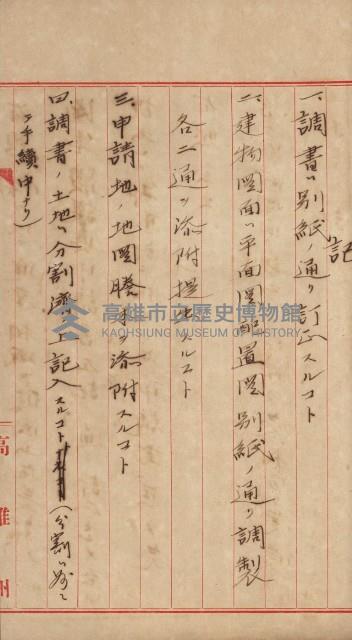 記
一、調書ハ別紙ノ通リ訂正スルコト
二、建物図面ハ平面図配置図別紙ノ通リ調製
各二通ヲ添附提出スルコト
三、申請地ノ地図謄本ヲ添附スルコト
四、調書ノ土地ハ分割濟ノ上記入スルコト(分割ハ
手續中ナリ)
高雄州
高雄市立歷史博物館
KAOHSIUNG MUSEUM OF HISTORY